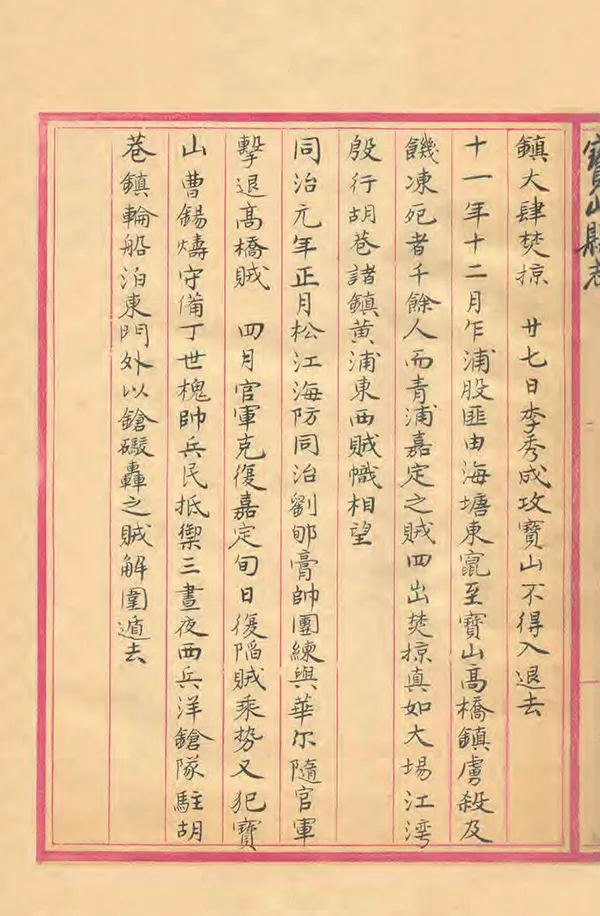 寶山縣志
鎮大肆焚掠　廿七日李秀成攻寶山不得入退去
十一年十二月乍浦股匪由海塘東竄至寶山高橋鎮虜殺及
饑凍死者千餘人而青浦嘉定之賊四出焚掠真如大場江灣
殷行胡巷諸鎮黃浦東西賊幟相望
同治元年正月松江海防同治劉郇膏帥團練與華尔隨官軍
擊退高橋賊　四月官軍克復嘉定旬日復陷賊乘势又犯寶
山曹錫燽守備丁世槐帥兵民抵禦三晝夜西兵洋鎗隊駐胡
巷鎮輪船泊東門外以鎗礮轟之賊解圍遁去